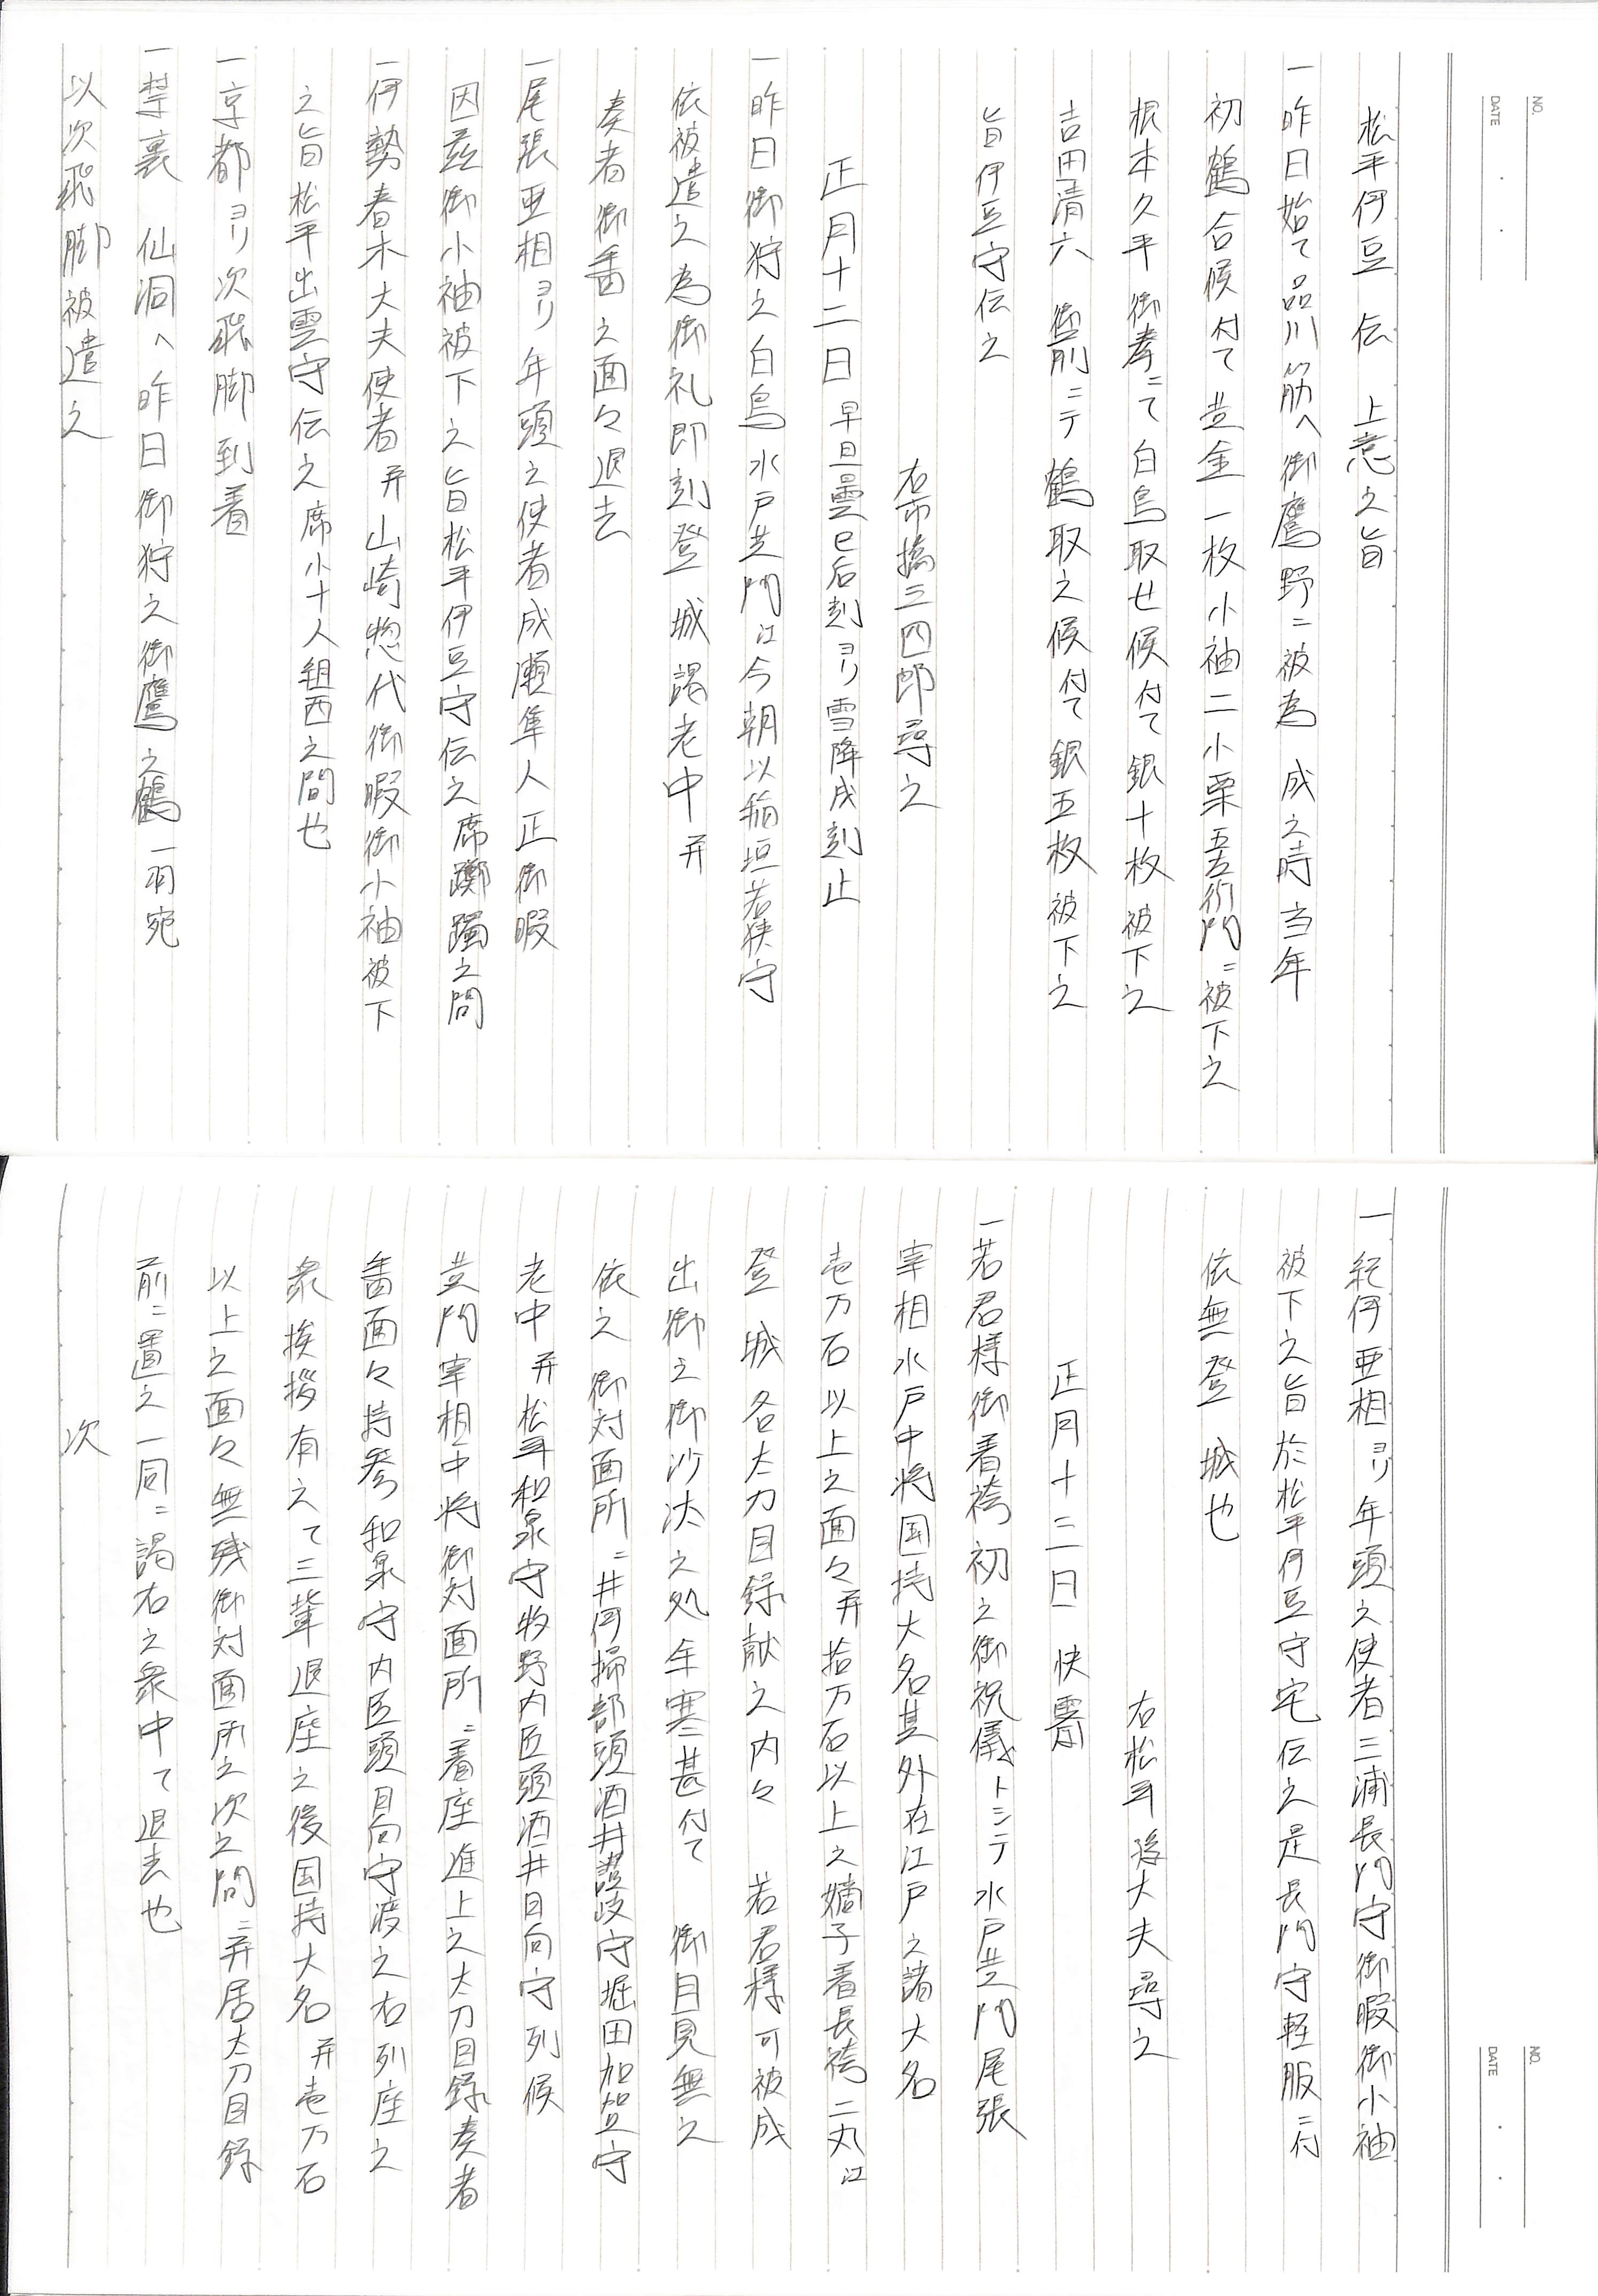 NO.
DATE
松平伊豆 伝 上意之旨
一昨日始て品川筋へ御鷹野ニ被為 成之時当年
初鶴合候付て 黄金一枚小袖二小栗五右衛門ニ被下之
根本久平御拳ニて白鳥取せ候付て銀十枚被下之
吉田清六 御前ニテ鶴取之候付て銀五枚被下之
旨伊豆守伝之
右市橋三四郎尋之
正月十二日 早旦曇巳后刻ヨリ雪降戌刻止
一昨日御狩之白鳥水戸黄門江今朝以稲垣若狭守
依被遣之為御礼即刻登 城謁老中并
奏者御番之面々退去
一尾張亜相ヨリ年頭之使者成瀬隼人正御暇
因茲御小袖被下之旨松平伊豆守伝之席躑躅之間
一伊勢春木大夫使者并山崎惣代御暇御小袖被下
之旨松平出雲守伝之席小十人組西之間也
一京都ヨリ次飛脚到着
一禁裏 仙洞へ昨日御狩之御鷹之鶴一羽宛
以次飛脚被遣之
NO.
DATE
一紀伊亜相ヨリ年頭之使者三浦長門守御暇御小袖
被下之旨於松平伊豆守宅伝之是長門守軽服ニ付
依無登 城也
右松平隼大夫尋之
正月十三日 快霽
一若君様御着袴初之御祝儀トシテ水戸黄門尾張
宰相水戸中将国持大名其外在江戸之諸大名
壱万石以上之面々并拾万石以上之嫡子着長袴二丸江
登 城各太刀目録献之内々 若君様可被成
出御之御沙汰之処年寒甚付て 御目見無之
依之御対面所ニ井伊掃部頭酒井讃岐守堀田加賀守
老中并松平和泉守牧野内匠頭酒井日向守列候
黄門宰相中将御対面所ニ着座進上之太刀目録奏者
番面々持参和泉守内匠頭日向守渡之右列座之
衆挨拶有之て三輩退座之後国持大名并壱万石
以上之面々無残御対面所之次之間ニ并居太刀目録
前ニ置之一同ニ謁右之衆中て退去也
次